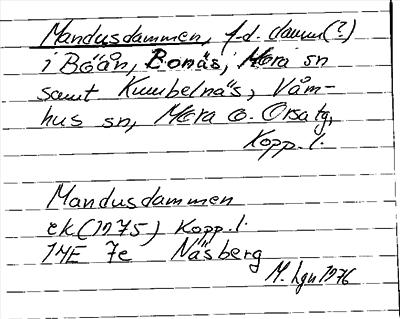 Mandusdammen, f.d. damm(?)
i Böån, Bonäs, Mora sn
samt Kumbelnäs, Våm-
hus sn, Mora o. Orsa tg,
Kopp. l.
Mandusdammen
ek (1975) Kopp. l.
14E 7e Näsberg
M. Lgn 1976